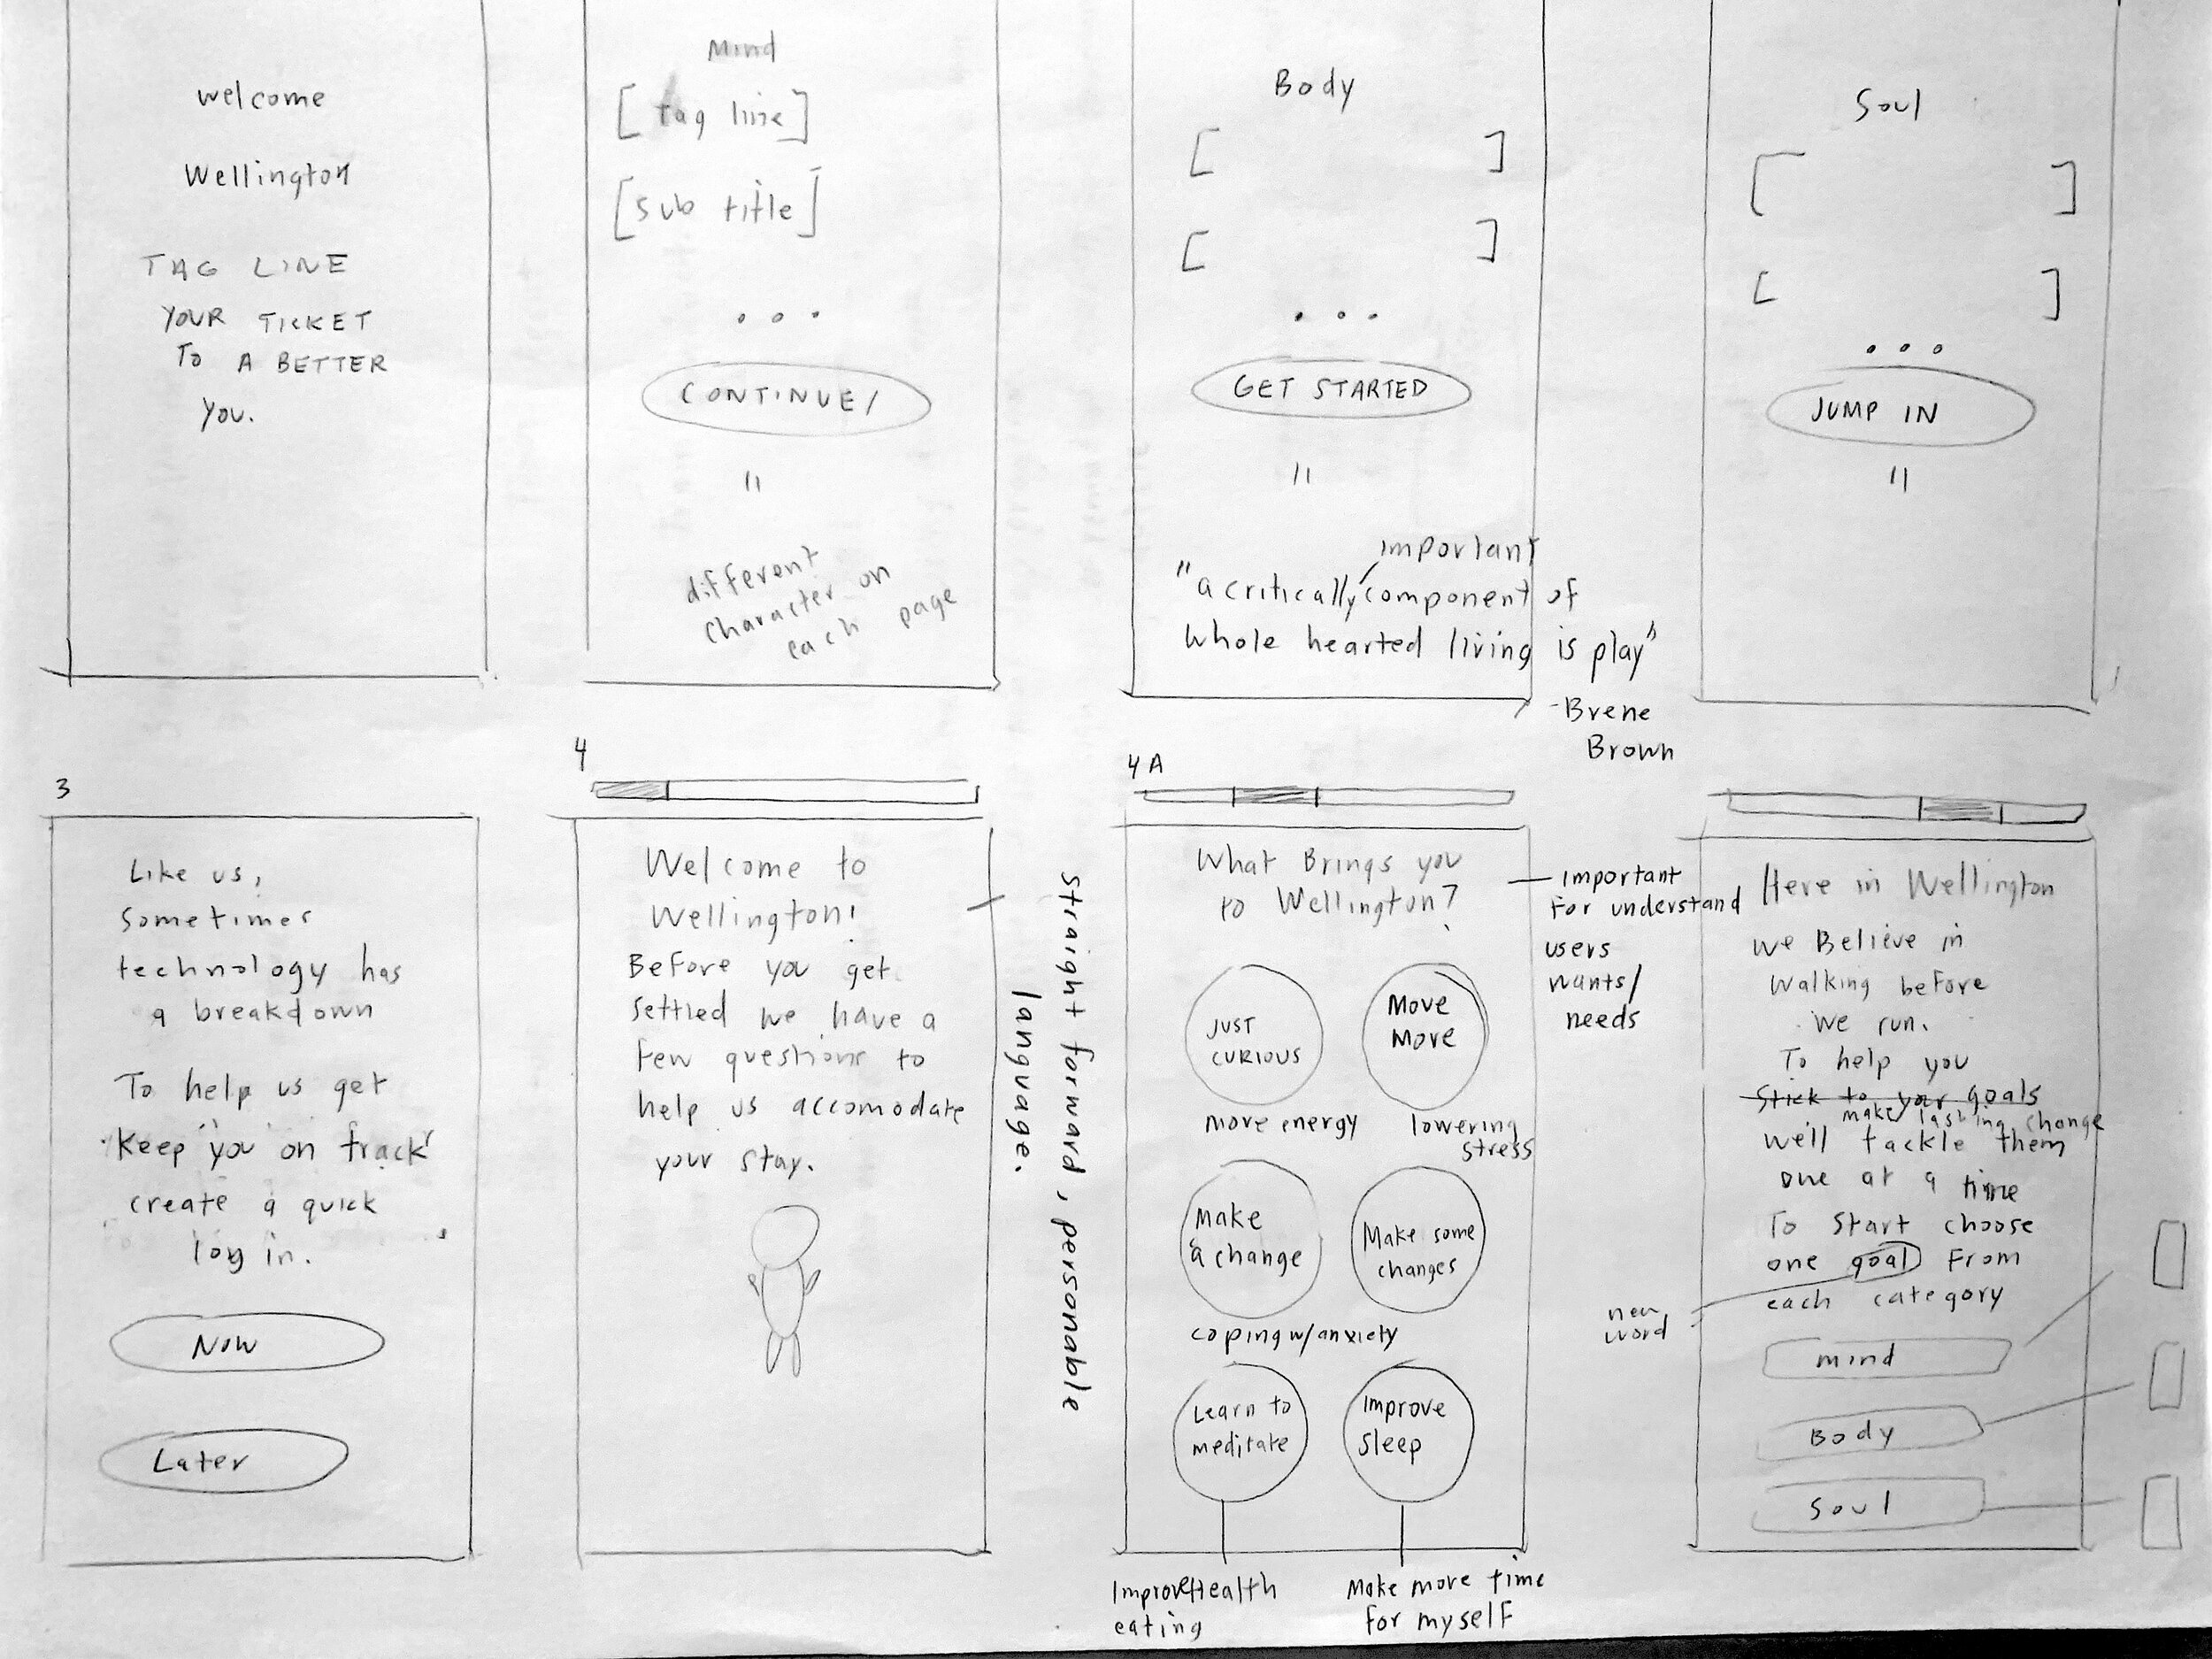 welcome
Wellington
TAG LINE
YOUR TICKET
TO A BETTER
YOU.
Mind
[tag line]
[sub title]
CONTINUE/
different
character on
each page
Body
[ ]
[ ]
GET STARTED
important
"a critically component of
whole hearted living is play"
-Brene
Brown
Soul
[ ]
[ ]
JUMP IN
3
Like us,
sometimes
technology has
a breakdown
To help us get
"keep "you" on track"
create a quick
log in.
Now
Later
4
Welcome to
Wellington!
Before you get
settled we have a
few questions to
help us accomodate
your stay.
straight forward, personable
language.
4A
What Brings you
to Wellington?
important
for understand
users
wants/
needs
JUST
CURIOUS
Move
More
more energy
lowering
stress
Make
a change
Make some
changes
coping w/anxiety
Learn to
meditate
improve
sleep
improve Health
eating
Make more time
for myself
Here in Wellington
we Believe in
walking before
we run.
To help you
stick to your goals
make lasting change
we'll tackle them
one at a time
To start choose
one goal from
each category
new
word
mind
Body
soul